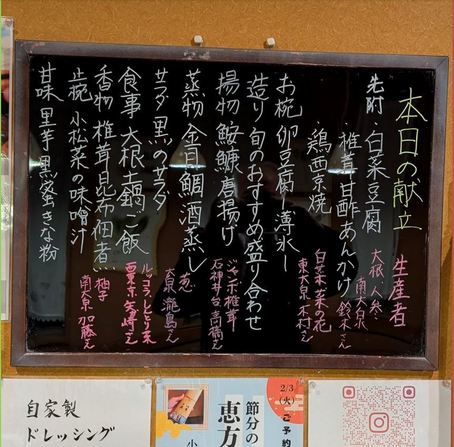 本日の献立
先附 白菜豆腐
椎茸甘酢あんかけ
鶏西京焼
お椀 卵豆腐 薄氷
造り 旬のおすすめ盛り合わせ
揚物 鮟鱇唐揚げ
蒸物 金目鯛酒蒸し
サラダ 黒のサラダ
食事 大根土鍋ご飯
香物 椎茸昆布佃煮
止椀 小松菜の味噌汁
甘味 里芋黒蜜きな粉
生産者
大根・人参
南大泉 鈴木さん
白菜・菜の花
東大泉 木村さん
ジャンボ椎茸
石神井台
葱
大泉
ルッコラ
柚子
南大泉 加藤さん
自家製
ドレッシング
2/3
(火)
ご予約
節分の
恵方